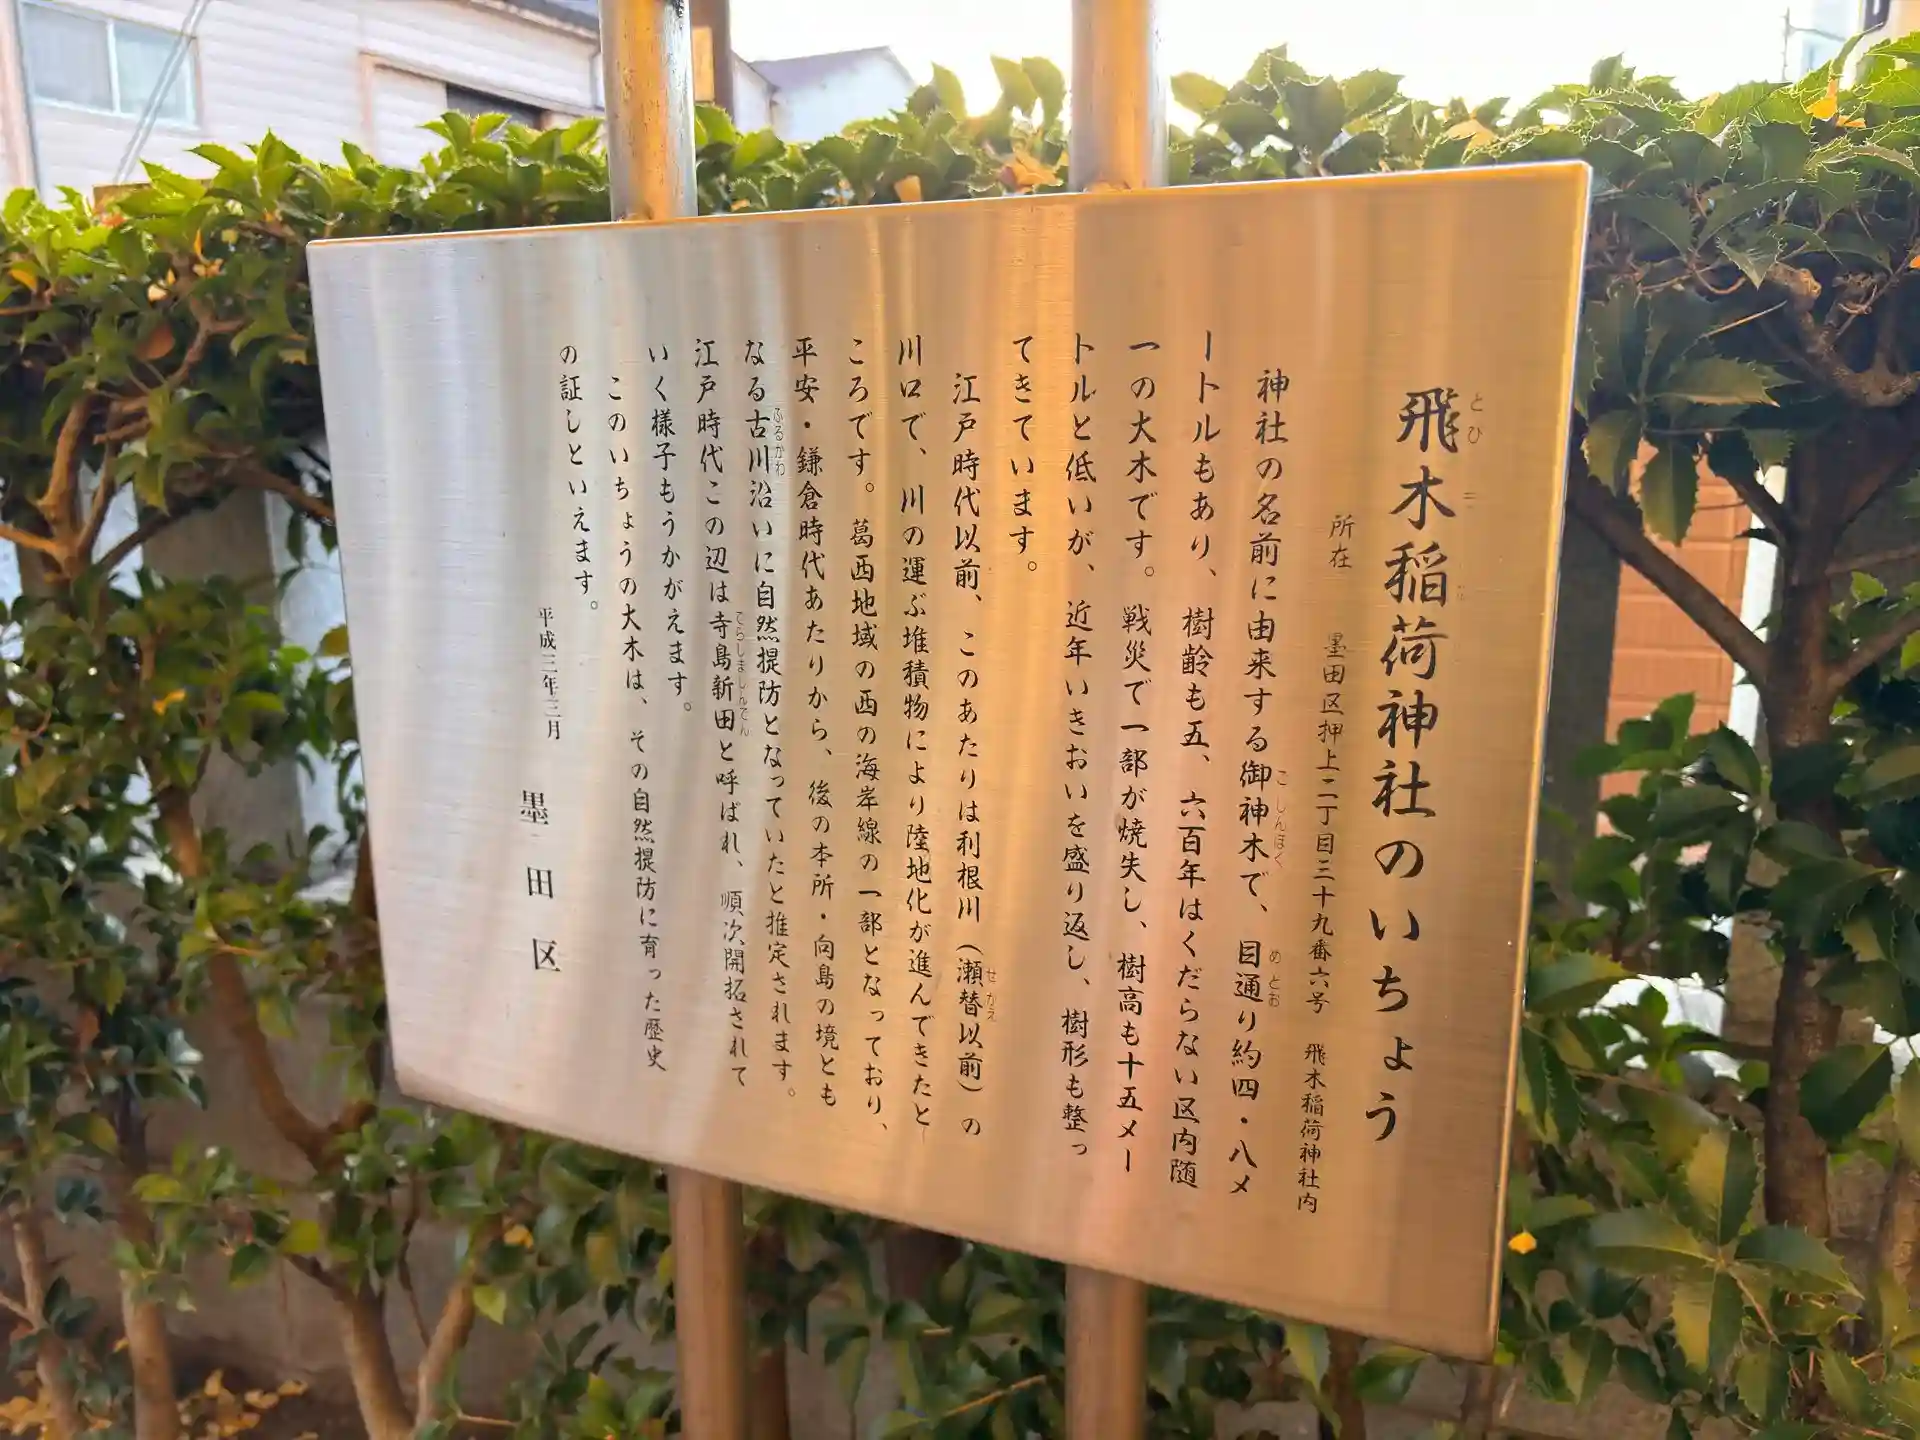 飛木稲荷神社のいちょう
とひ
所在 墨田区押上二丁目三十九番六号 飛木稲荷神社内
神社の名前に由来する御神木で、目通り約四・八メ
ごしんぼく
めどお
ートルもあり、樹齢も五、六百年はくだらない区内随
一の大木です。戦災で一部が焼失し、樹高も十五メー
トルと低いが、近年いきおいを盛り返し、樹形も整っ
てきています。
江戸時代以前、このあたりは利根川（瀬替以前）の
せがえ
川口で、川の運ぶ堆積物により陸地化が進んできたと
ころです。葛西地域の西の海岸線の一部となっており、
平安・鎌倉時代あたりから、後の本所・向島の境とも
なる古川沿いに自然提防となっていたと推定されます。
ふるかわ
江戸時代この辺は寺島新田と呼ばれ、順次開拓されて
てらしましんでん
いく様子もうかがえます。
このいちょうの大木は、その自然提防に育った歴史
の証しといえます。
平成三年三月
墨田区